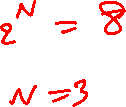 2^N = 8
N = 3